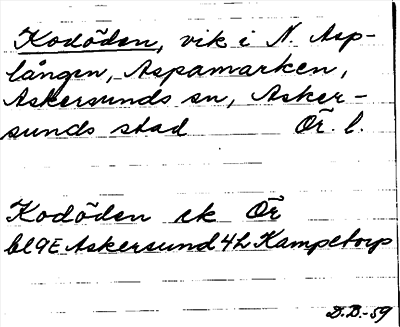 Kodöden, vik i N. Asp-
lången, Aspamarken,
Askersunds sn, Asker-
sunds stad Ör. l.
Kodöden ek Ör
bl 9E Askersund 4h Kampetorp
D.D.-59